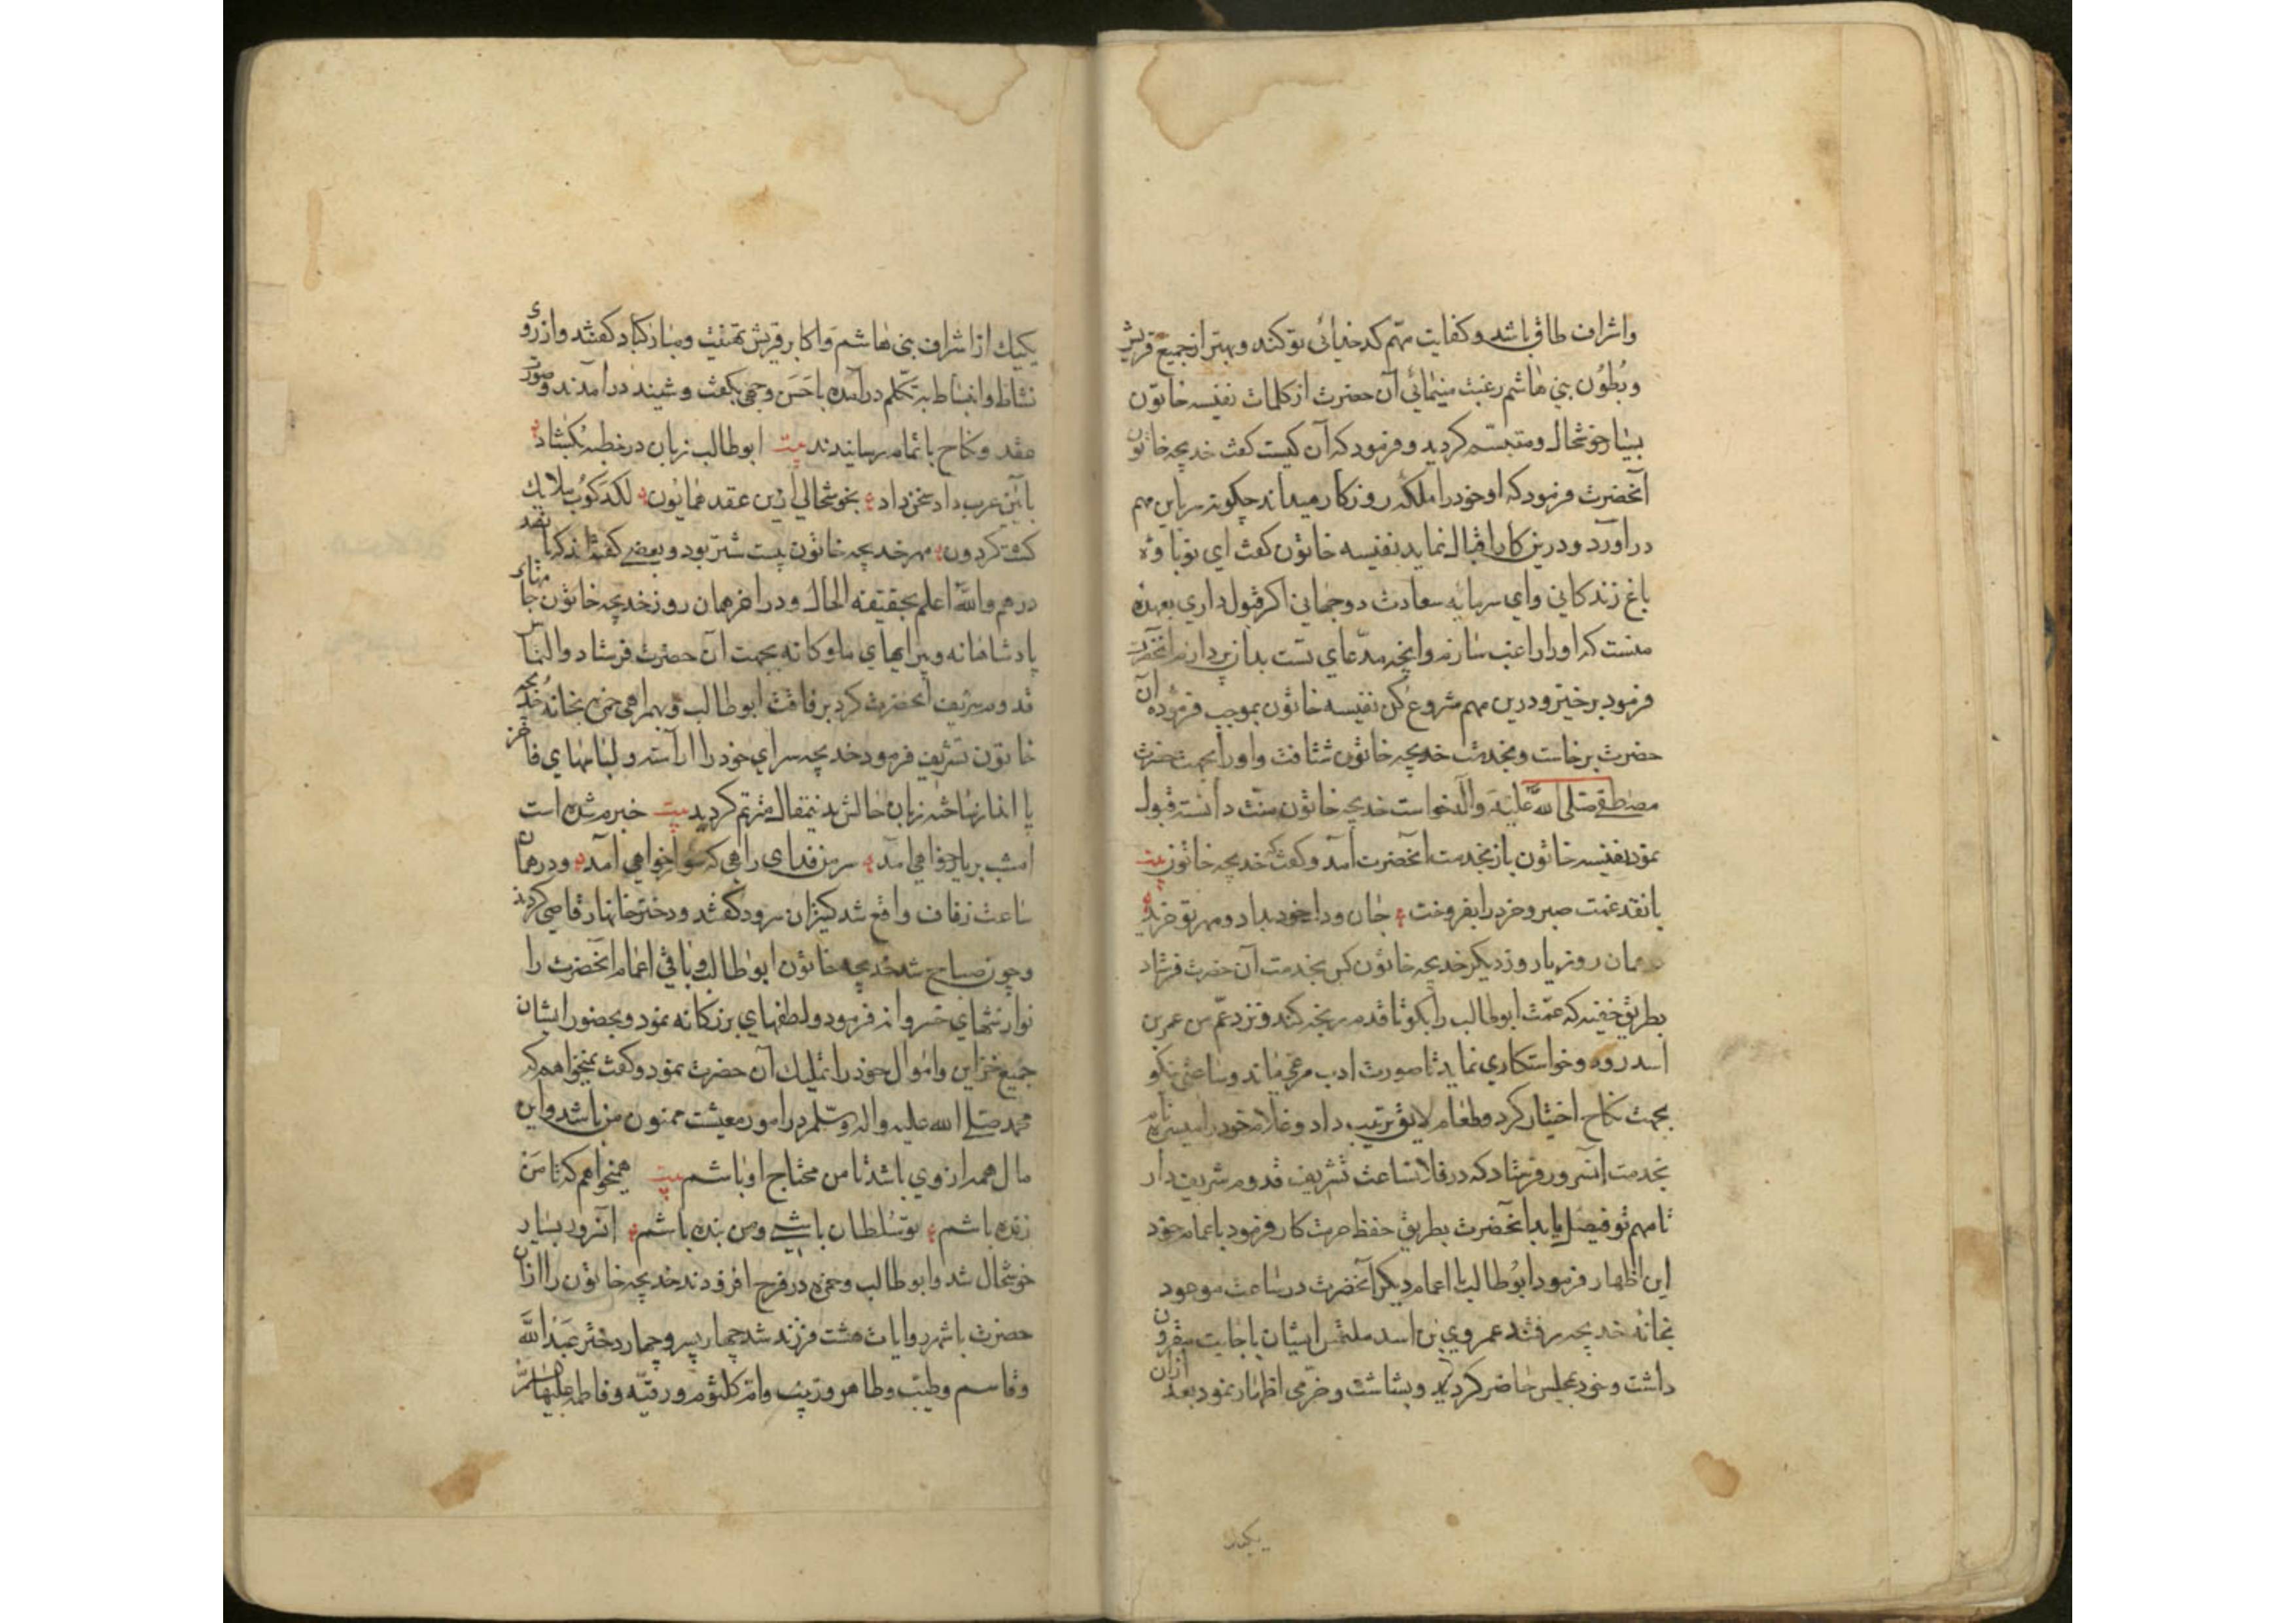 واشراف طاق باشد و کفایت مهم کدخدائی تو کند و بهتر از جمیع قریش
و بُطوُن بنی هاشم رغبت مینمائی آن حضرت از کلمات نفیسه خاتون
بسیار خوشحال و متبسّم کردید و فرمود که آن کیست کفت خدیجه خاتون
آنحضرت فرمود که او خود را ملکهٔ روزکار میداند چکونه سر باین مهم
در آورد و درین کار اقبال نماید نفیسه خاتون کفت ای نوباوهٔ
باغ زندکانی وای سرمایهٔ سعادت دوجهانی اکر قبول داری بعهدهٔ
منست که او را راغب سازم وانچه مدّعای تست بدان پردازم آنحضرت
فرمود برخیز و درین مهم شروع کن نفیسه خاتون بموجب فرمودهٔ آن
حضرت برخاست و بخدمت خدیجه خاتون شتافت و او را بجهت حضرت
مصطفی صلی الله علیه وآله خواست خدیجه خاتون منّت دانسته قبول
نمود نفیسه خاتون باز بخدمت آنحضرت آمد و کفت که خدیجه خاتون بیت
با نقد غمت صبر و خرد را بفروخت جان و دل خود بداد و مهر تو خرید
همان روز یا روز دیکر خدیجه خاتون کس بخدمت آن حضرت فرستاد
بطریق خفیه که عمّت ابوطالب را بکو تا قدم رنجه کند و نزد عمّ من عمر بن
اسد رود و خواستکاری نماید تا صورت ادب مرعی ماند و ساعتی نیکو
بجهت نکاح اختیار کرد و طعام لایق ترتیب داد و غلام خود را میسره نام
بخدمت آنسرور فرستاد که در فلان ساعت تشریف قدوم شریف دار
تا مهم تو فیصل یابد آنحضرت بطریق حفظ حرمت کار فرمود با عمام خود
این اظهار فرمود ابوُطالب با اعمام دیکر آنحضرت در ساعت موعود
بخانهٔ خدیجه رفتند عمروی بن اسد ملتمس ایشان باجابت مقرون
داشت و خود بمجلس حاضر کردید و بشاشت و خرّمی اظهار نمود بعد ازان
یکیک
یکیک از اشراف بنی هاشم واکابر قریش تهنیت و مبارکباد کفتند و از روی
نشاط و انبساط به تکلم درآمده باحسن وجهی بکفت و شنید درآمدند و صورت
عقد و نکاح باتمام رسانیدند بیت ابوطالب زبان در خطبه بکشاد
بآیین عرب داد سخن داد بخوشحالی ازین عقد همایون لکدکوُب ملایک
کشت کردون مهر خدیجه خاتون بیست شتر بود و بعضی کفته اند که پانصد
درهم والله اعلم بحقیقة الحال و در آخر همان روز خدیجه خاتون جامهاء
پادشاهانه و پیرایهای ملوکانه بجهت آن حضرت فرستاد و التماس
قدوم شریف آنحضرت کرد برفاقت ابوطالب و بهمراهی حمزه بخانهٔ خدیجه
خاتون تشریف فرمود خدیجه سرای خود را آراسته و لباسهای فاخر
پا انداز ساخته زبان حالش بدین مقال مترنم کردید بیت خبرم شده است
امشب بر یار خواهی آمد سر من فدای راهی که سوار خواهی آمد و در همان
ساعت زفاف واقع شد کنیزان سرود کفتند و دختر خانها رقاصی کردند
و چون صباح شد خدیجه خاتون ابوطالب و باقی اعمام آنحضرت را
نوازشهای خسروانه فرمود و لطفهای بزرکانه نمود و بحضور ایشان
جمیع خزاین واموال خود را تملیک آن حضرت نمود و کفت میخواهم که
محمد صلی الله علیه واله وسلّم در امور معیشت ممنون من نباشد واین
مال همه از وی باشد تا من محتاج او باشم بیت همیخواهم که تا من
زنده باشم تو سُلطان باشی و من بنده باشم آنسرور بسیار
خوشحال شد و ابوطالب و حمزه در فرح افزودند خدیجه خاتون را ازان
حضرت باشهر روایات هشت فرزند شد چهار پسر و چهار دختر عبدالله
وقاسم وطیّب وطاهر وزینب وام کلثوم ورقیّه وفاطمه علیها السلم